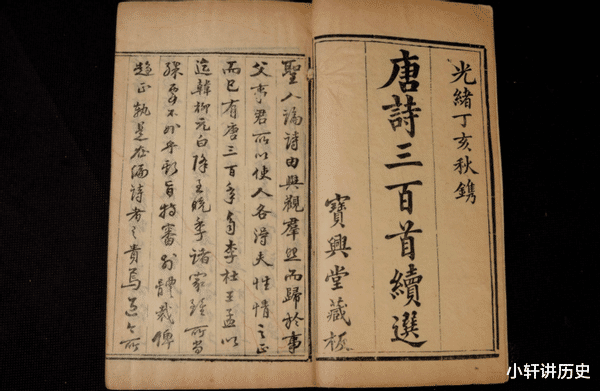 光緒丁亥秋鐫
唐詩三百首續選
寶興堂藏板
聖人論詩由興觀群怨而歸於事
父事君所以使人各得夫性情之正
而已有唐三百年自李杜王孟以
迄韓柳元白降至晚季諸家雖所尚
殊要不外乎斯旨特審別體裁俾
趨正軌是在編詩者之責焉
小轩讲历史